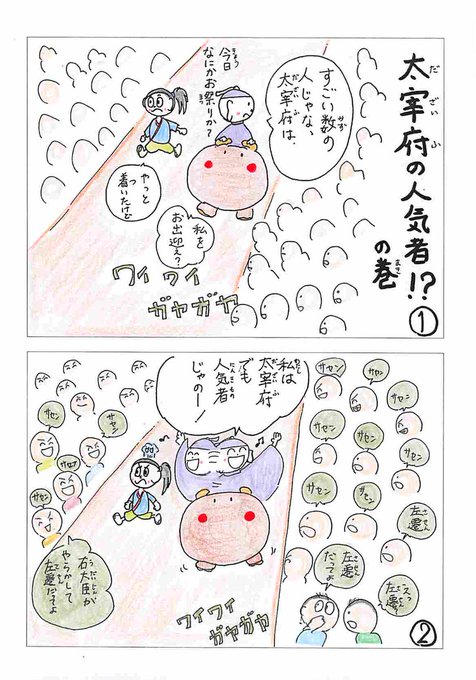 太宰府の人気者!?
の巻
①
すごい数の
人じゃな、
太宰府は
今日
なにかお祭りか?
やっと
着いたけど
私を
お出迎え?
ワイワイ
ガヤガヤ
私は
太宰府
でも
人気者
じゃのー!
サセン
サセン
サセン
サセン
サセン
サセン
サセン
左遷
左遷
だってよ
左遷
サセン
サセン
サセン
サセン
右大臣が
やらかして
左遷だてよ
ワイワイ
ガヤガヤ
②